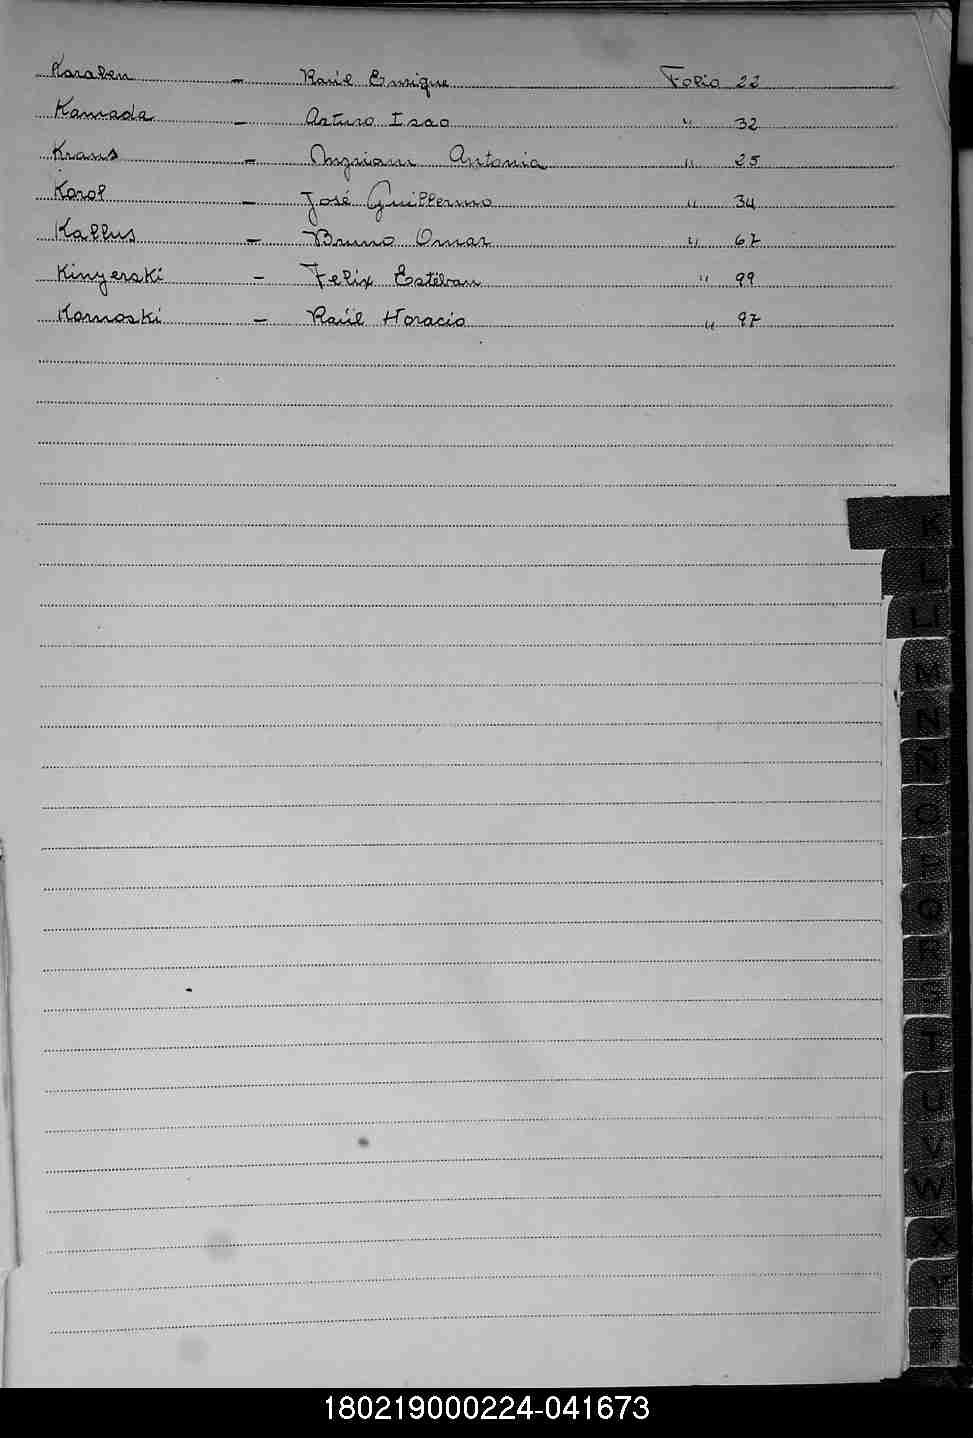 Karalen - Raúl Enrique Folio 22
Kamada - Arturo Isao " 32
Kraus - Myriam Antonia " 25
Korol - José Guillermo " 34
Kallus - Bruno Omar " 67
Kinyerski - Felix Estéban " 99
Komoski - Raúl Horacio " 97
K
L
LL
M
N
Ñ
O
P
Q
R
S
T
U
V
W
X
Y
Z
180219000224-041673